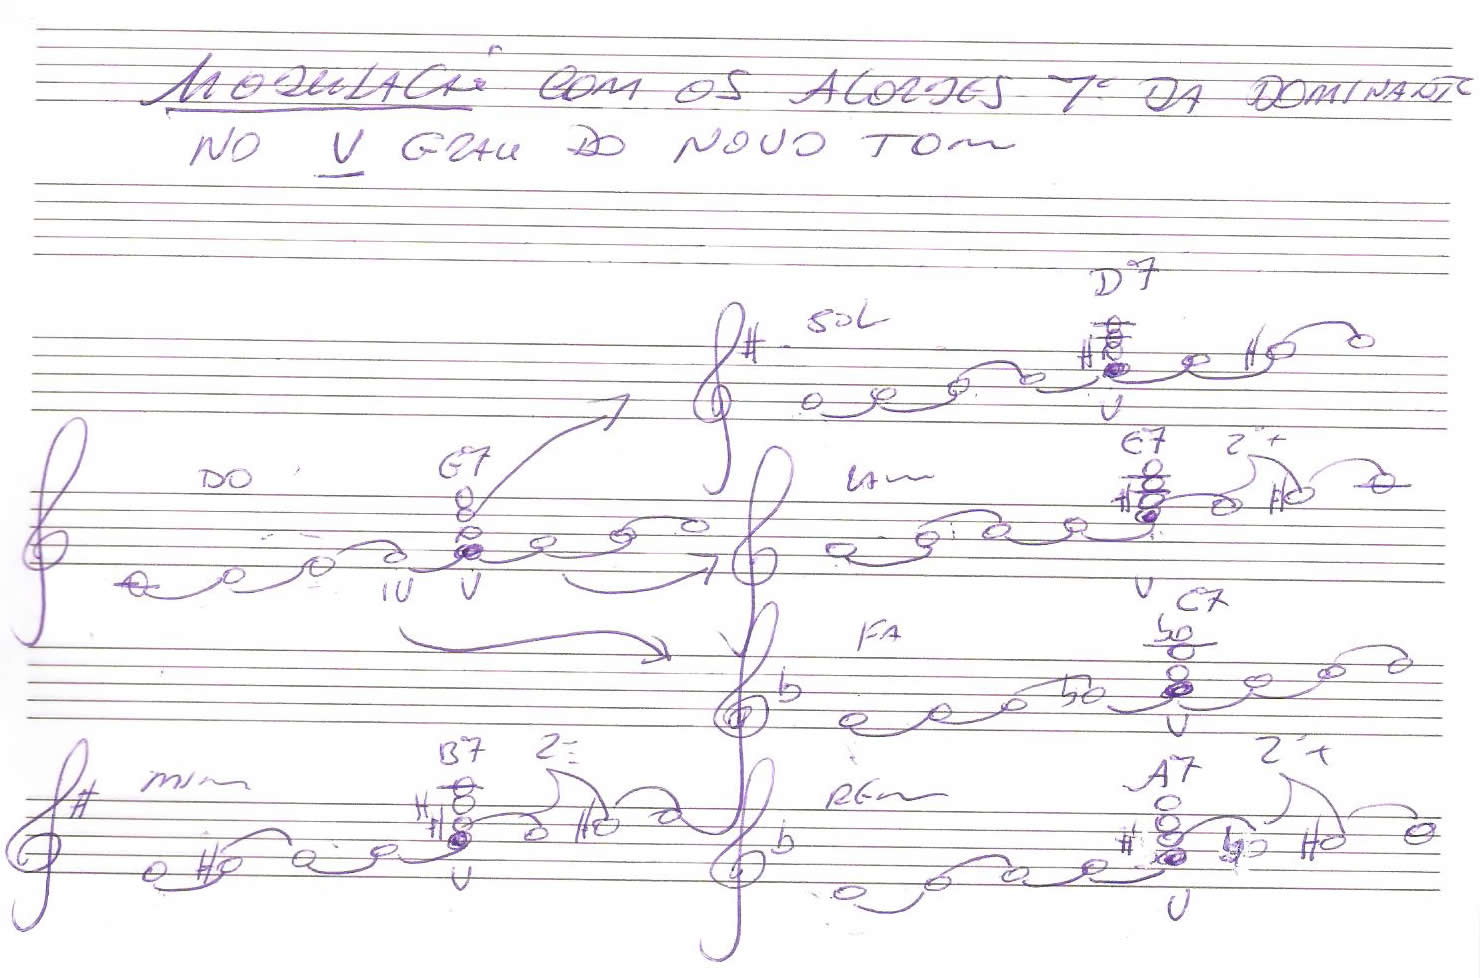 MODULAÇÃO COM OS ACORDES 7ª DA DOMINANTE
NO V GRAU DO NOVO TOM
SOL D7
V
DO G7
IV V
LAm E7 2ª+
V
FA C7
V
MIm B7 2ª
V
REm A7 2ª+
V